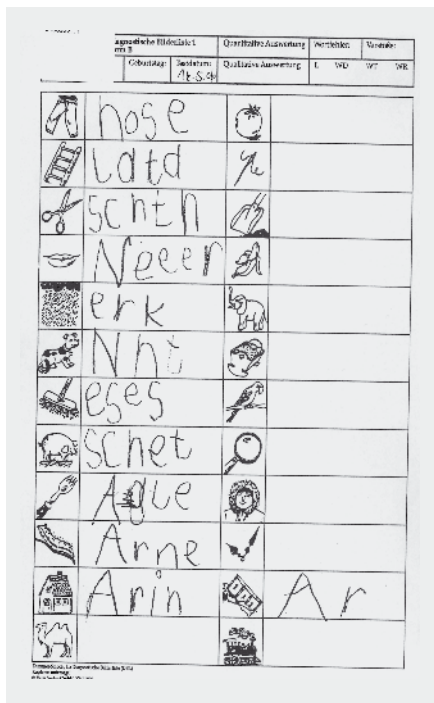 agnostische Bilderliste 1
Quantitative Auswertung
Wortfehler
Geburtstag:
Testdatum:
Qualitative Auswertung
L WD WT WR
hose
Latd
Schth
Neeer
erk
Nht
eses
schet
Ague
Arne
Arin Ar